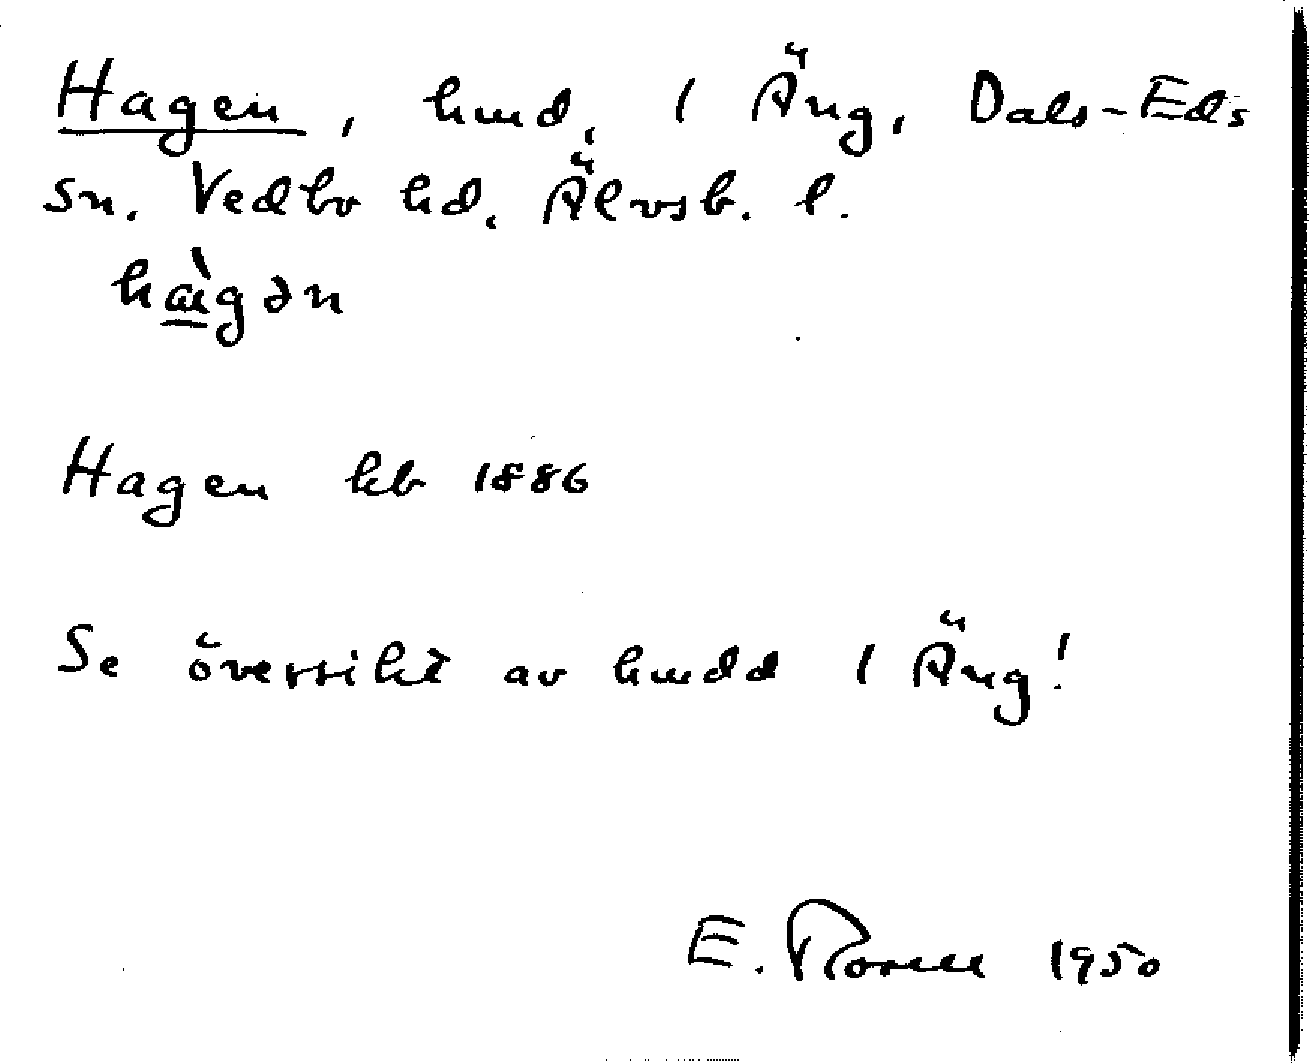 Hagen, hmd, 1 Äng, Dals-Eds
sn. Vedbo hd, Älvsb. l.
hàgən
Hagen kb 1886
Se översikt av hmdd 1 Äng!
E. 1950